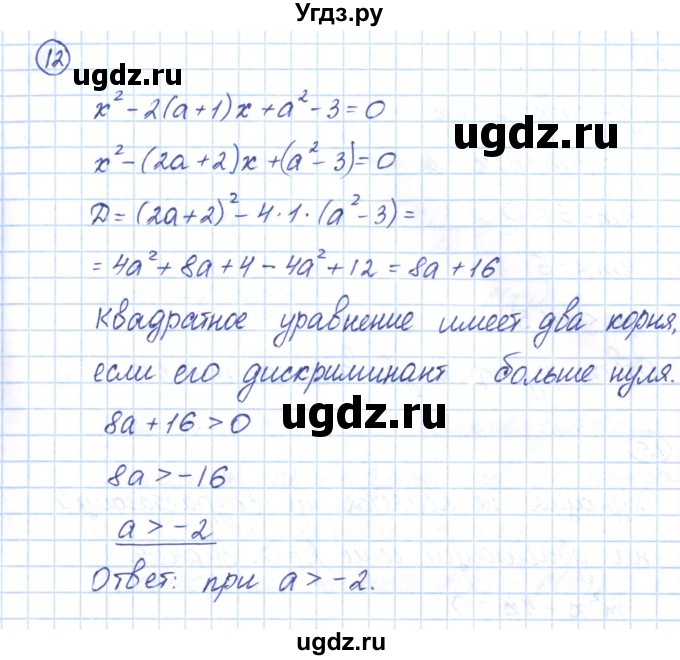 Угдз.ру
12
ugdz.ru
x² - 2(a+1)x + a² - 3 = 0
ugdz.ru
x² - (2a+2)x + (a² - 3) = 0
Д = (2a+2)² - 4·1·(a² - 3) =
= 4a² + 8a + 4 - 4a² + 12 = 8a + 16
ugdz.ru
квадратное уравнение имеет два корня,
если его дискриминант больше нуля.
8a + 16 > 0
ugdz.ru
8a > -16
a > -2
ugdz.ru
Ответ: при a > -2.
ugdz.ru